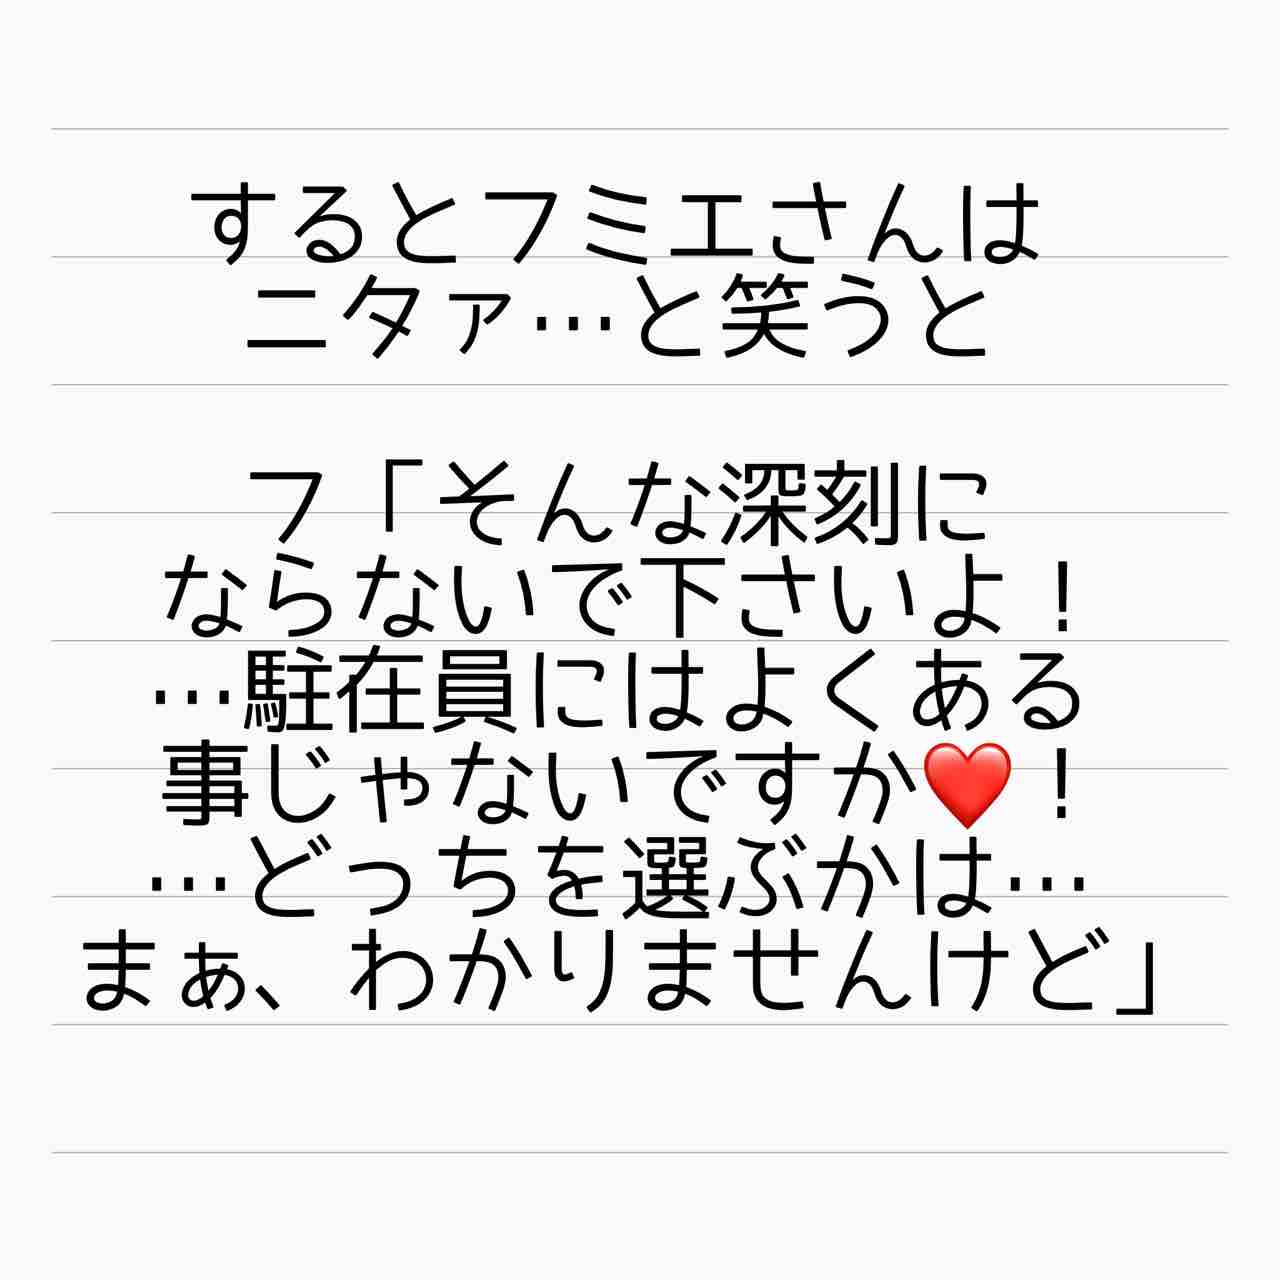 するとフミエさんは
ニタァ…と笑うと
フ「そんな深刻に
ならないで下さいよ！
…駐在員にはよくある
事じゃないですか❤️！
…どっちを選ぶかは…
まぁ、わかりませんけど」